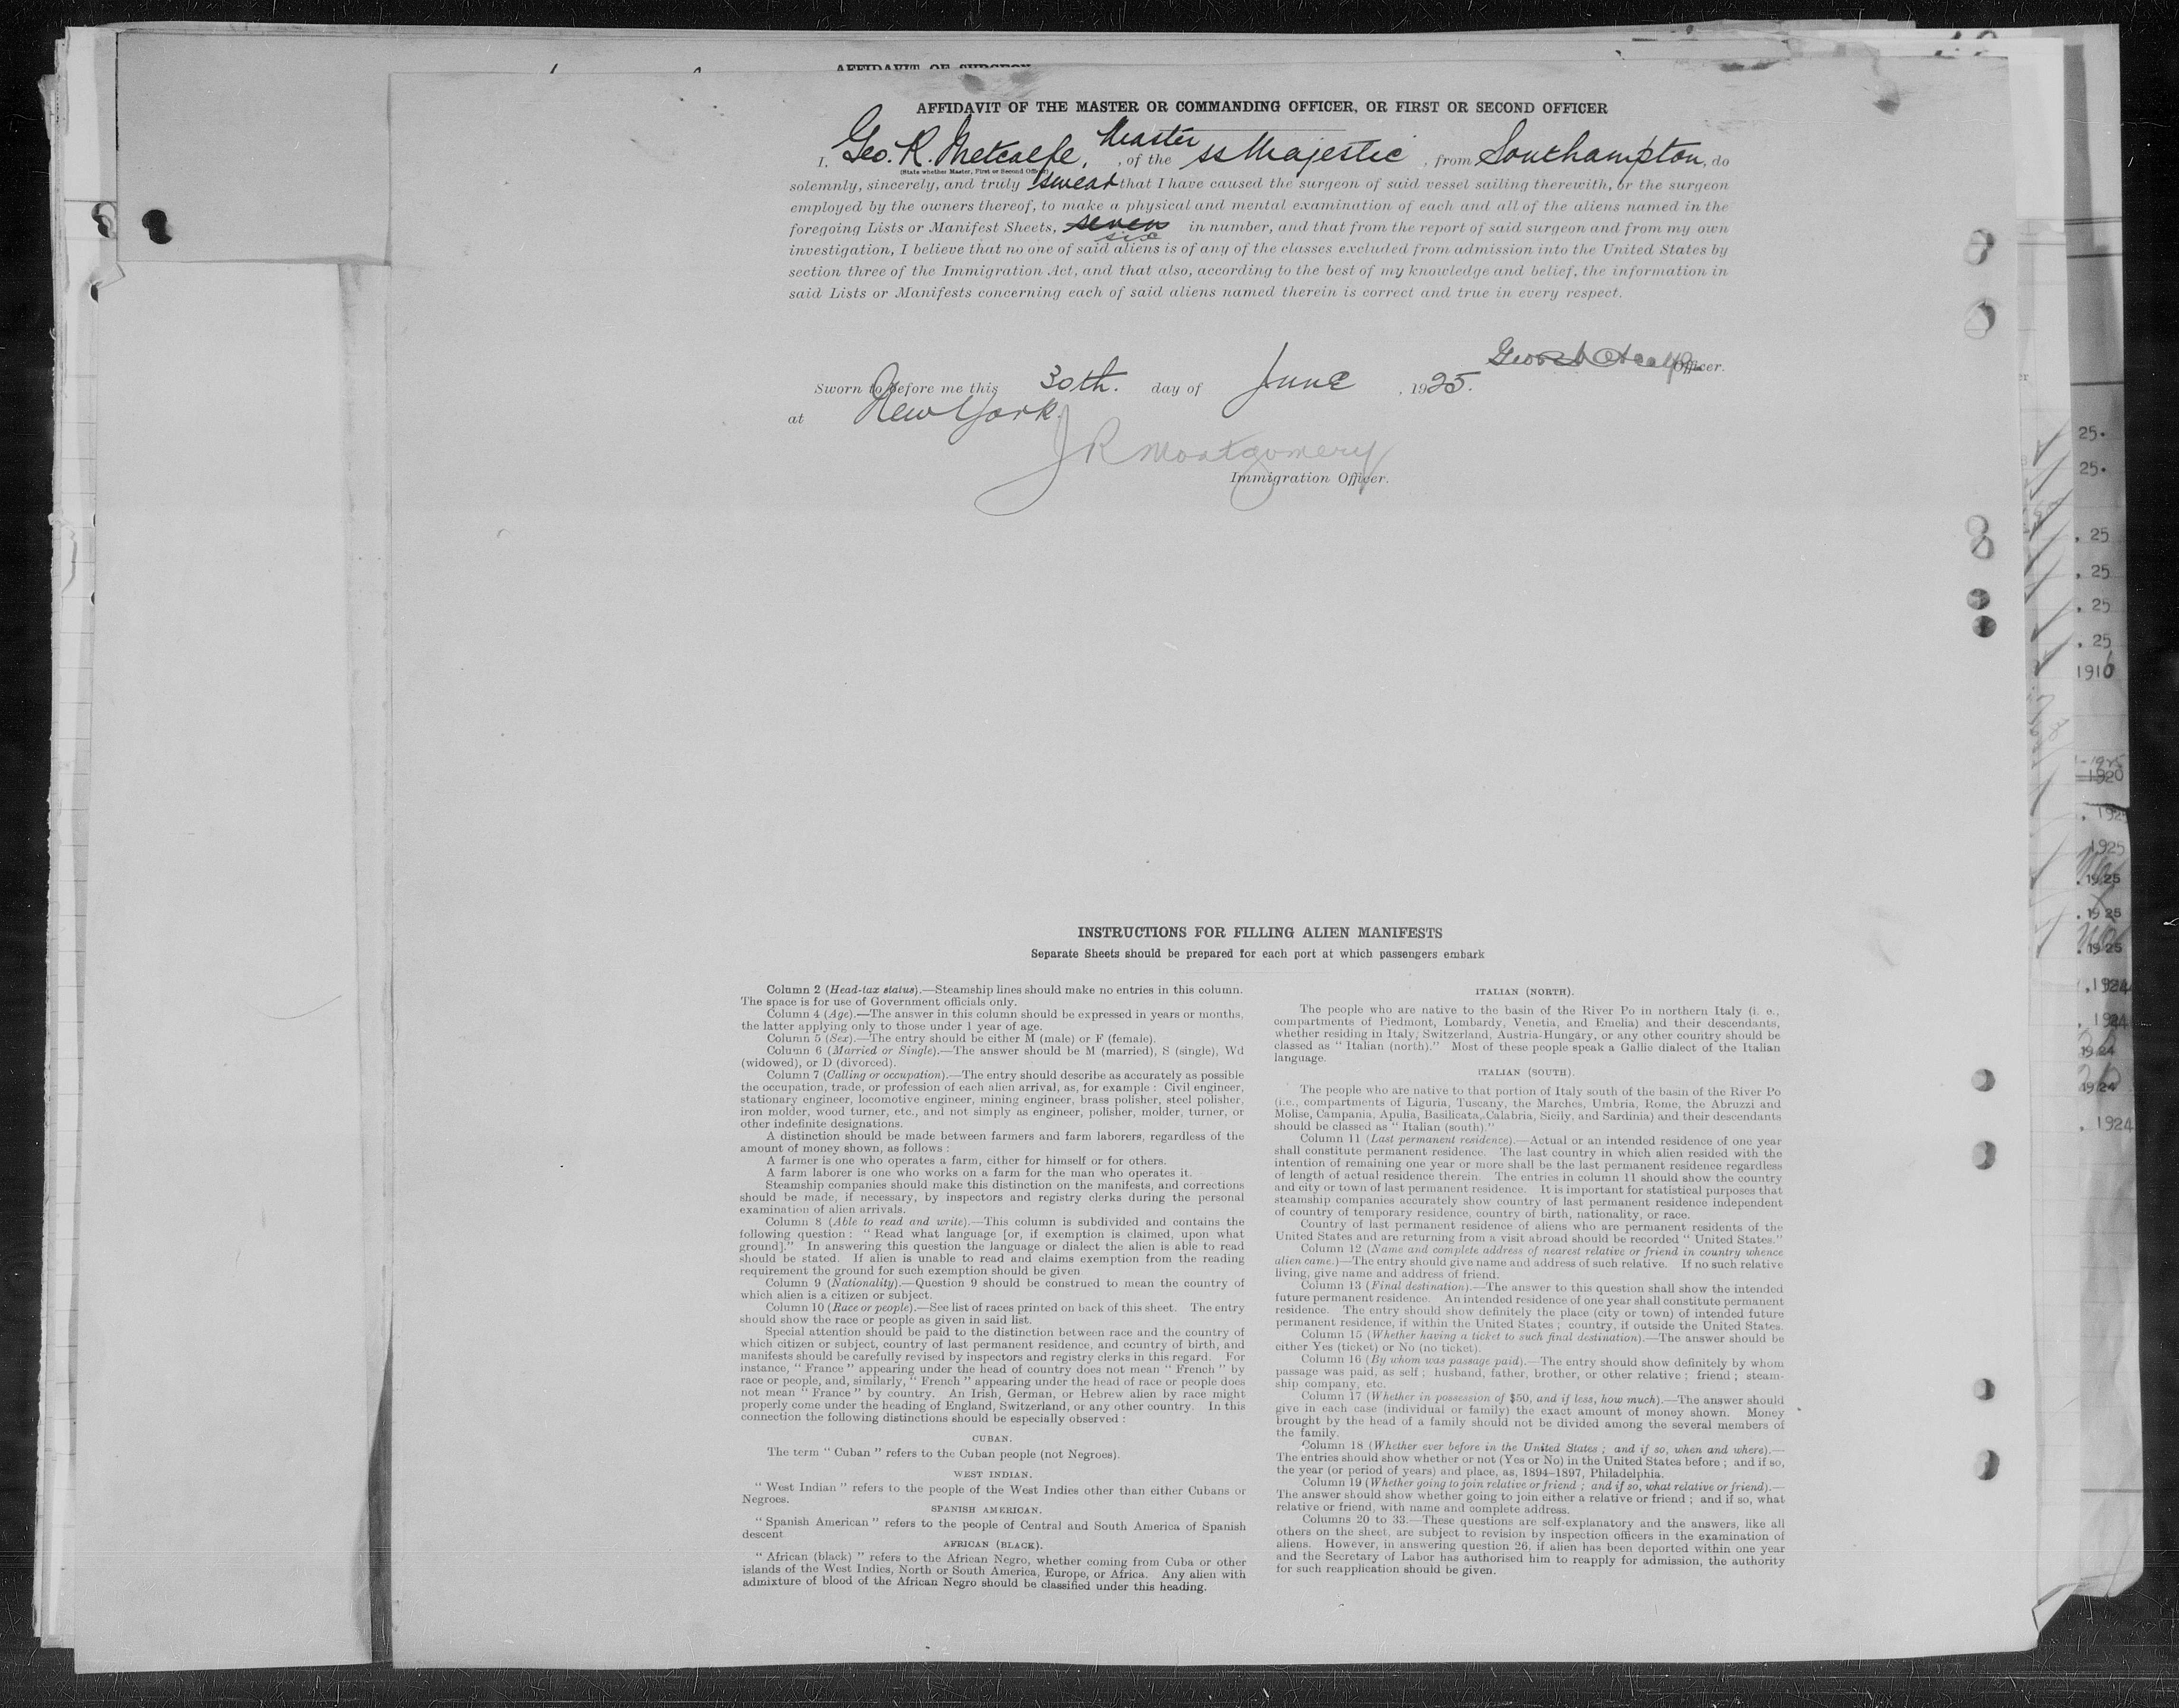 AFFIDAVIT OF SURGEON
AFFIDAVIT OF THE MASTER OR COMMANDING OFFICER, OR FIRST OR SECOND OFFICER
I, Geo. R. Metcalfe, Master, of the ss Majestic, from Southampton, do
(State whether Master, First or Second Officer)
solemnly, sincerely, and truly swear that I have caused the surgeon of said vessel sailing therewith, or the surgeon
employed by the owners thereof, to make a physical and mental examination of each and all of the aliens named in the
foregoing Lists or Manifest Sheets, seven in number, and that from the report of said surgeon and from my own
six
investigation, I believe that no one of said aliens is of any of the classes excluded from admission into the United States by
section three of the Immigration Act, and that also, according to the best of my knowledge and belief, the information in
said Lists or Manifests concerning each of said aliens named therein is correct and true in every respect.
Geo R Metcalfe Officer.
Sworn to before me this 30th. day of June, 1925.
at New York.
J R Montgomery
Immigration Officer.
INSTRUCTIONS FOR FILLING ALIEN MANIFESTS
Separate Sheets should be prepared for each port at which passengers embark
Column 2 (Head-tax status).—Steamship lines should make no entries in this column.
The space is for use of Government officials only.
Column 4 (Age).—The answer in this column should be expressed in years or months,
the latter applying only to those under 1 year of age.
Column 5 (Sex).—The entry should be either M (male) or F (female).
Column 6 (Married or Single).—The answer should be M (married), S (single), Wd
(widowed), or D (divorced).
Column 7 (Calling or occupation).—The entry should describe as accurately as possible
the occupation, trade, or profession of each alien arrival, as, for example : Civil engineer,
stationary engineer, locomotive engineer, mining engineer, brass polisher, steel polisher,
iron molder, wood turner, etc., and not simply as engineer, polisher, molder, turner, or
other indefinite designations.
A distinction should be made between farmers and farm laborers, regardless of the
amount of money shown, as follows :
A farmer is one who operates a farm, either for himself or for others.
A farm laborer is one who works on a farm for the man who operates it.
Steamship companies should make this distinction on the manifests, and corrections
should be made, if necessary, by inspectors and registry clerks during the personal
examination of alien arrivals.
Column 8 (Able to read and write).—This column is subdivided and contains the
following question : " Read what language [or, if exemption is claimed, upon what
ground]." In answering this question the language or dialect the alien is able to read
should be stated. If alien is unable to read and claims exemption from the reading
requirement the ground for such exemption should be given
Column 9 (Nationality).—Question 9 should be construed to mean the country of
which alien is a citizen or subject.
Column 10 (Race or people).—See list of races printed on back of this sheet. The entry
should show the race or people as given in said list.
Special attention should be paid to the distinction between race and the country of
which citizen or subject, country of last permanent residence, and country of birth, and
manifests should be carefully revised by inspectors and registry clerks in this regard. For
instance, " France " appearing under the head of country does not mean " French " by
race or people, and, similarly, " French " appearing under the head of race or people does
not mean " France " by country. An Irish, German, or Hebrew alien by race might
properly come under the heading of England, Switzerland, or any other country. In this
connection the following distinctions should be especially observed :
CUBAN.
The term " Cuban " refers to the Cuban people (not Negroes).
WEST INDIAN.
" West Indian " refers to the people of the West Indies other than either Cubans or
Negroes.
SPANISH AMERICAN.
" Spanish American " refers to the people of Central and South America of Spanish
descent
AFRICAN (BLACK).
" African (black) " refers to the African Negro, whether coming from Cuba or other
islands of the West Indies, North or South America, Europe, or Africa. Any alien with
admixture of blood of the African Negro should be classified under this heading.
ITALIAN (NORTH).
The people who are native to the basin of the River Po in northern Italy (i. e.,
compartments of Piedmont, Lombardy, Venetia, and Emelia) and their descendants,
whether residing in Italy, Switzerland, Austria-Hungary, or any other country should be
classed as " Italian (north)." Most of these people speak a Gallic dialect of the Italian
language.
ITALIAN (SOUTH).
The people who are native to that portion of Italy south of the basin of the River Po
(i.e., compartments of Liguria, Tuscany, the Marches, Umbria, Rome, the Abruzzi and
Molise, Campania, Apulia, Basilicata, Calabria, Sicily, and Sardinia) and their descendants
should be classed as " Italian (south)."
Column 11 (Last permanent residence).—Actual or an intended residence of one year
shall constitute permanent residence. The last country in which alien resided with the
intention of remaining one year or more shall be the last permanent residence regardless
of length of actual residence therein. The entries in column 11 should show the country
and city or town of last permanent residence. It is important for statistical purposes that
steamship companies accurately show country of last permanent residence independent
of country of temporary residence, country of birth, nationality, or race.
Country of last permanent residence of aliens who are permanent residents of the
United States and are returning from a visit abroad should be recorded " United States."
Column 12 (Name and complete address of nearest relative or friend in country whence
alien came.)—The entry should give name and address of such relative. If no such relative
living, give name and address of friend.
Column 13 (Final destination).—The answer to this question shall show the intended
future permanent residence. An intended residence of one year shall constitute permanent
residence. The entry should show definitely the place (city or town) of intended future
permanent residence, if within the United States ; country, if outside the United States.
Column 15 (Whether having a ticket to such final destination).—The answer should be
either Yes (ticket) or No (no ticket).
Column 16 (By whom was passage paid).—The entry should show definitely by whom
passage was paid, as self ; husband, father, brother, or other relative ; friend ; steam-
ship company, etc.
Column 17 (Whether in possession of $50, and if less, how much).—The answer should
give in each case (individual or family) the exact amount of money shown. Money
brought by the head of a family should not be divided among the several members of
the family.
Column 18 (Whether ever before in the United States ; and if so, when and where).—
The entries should show whether or not (Yes or No) in the United States before ; and if so,
the year (or period of years) and place, as, 1894–1897, Philadelphia.
Column 19 (Whether going to join relative or friend ; and if so, what relative or friend).—
The answer should show whether going to join either a relative or friend ; and if so, what
relative or friend, with name and complete address.
Columns 20 to 33.—These questions are self-explanatory and the answers, like all
others on the sheet, are subject to revision by inspection officers in the examination of
aliens. However, in answering question 26, if alien has been deported within one year
and the Secretary of Labor has authorised him to reapply for admission, the authority
for such reapplication should be given.
25.
25.
. 25
. 25
. 25
. 25
1916
1920
. 1925
1925
. 1925
. 1925
. 1925
. 1924
. 1924
1924
1924
. 1924